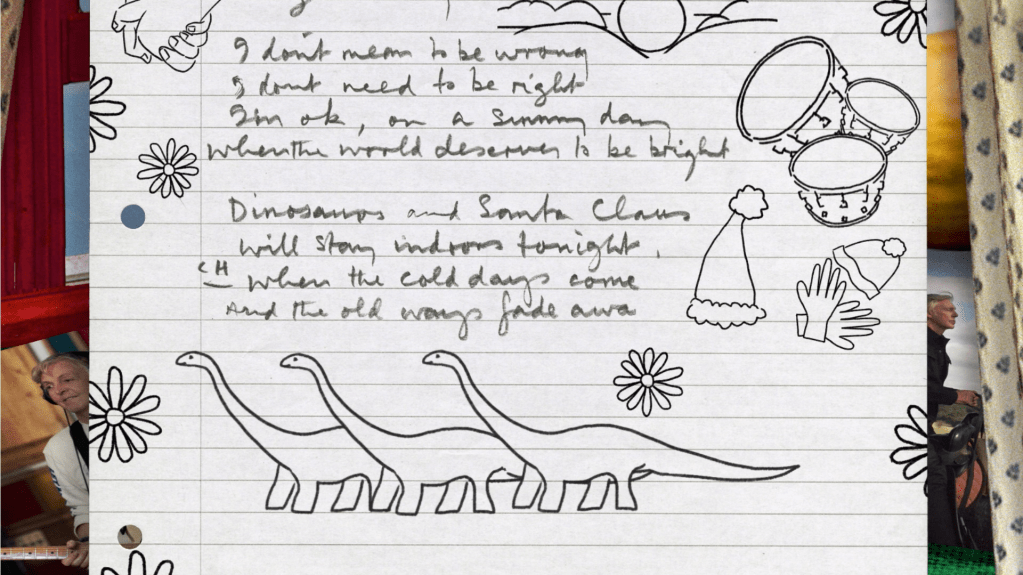 I don't mean to be wrong
I dont need to be right
I'm ok, on a sunny day
when the world deserves to be bright
Dinosaurs and Santa Claus
will stay indoors tonight.
CH when the cold days come
And the old ways fade awa